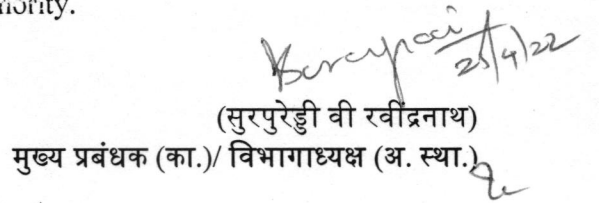 25/4/22
(सुरपुरेड्डी वी रवींद्रनाथ)
मुख्य प्रबंधक (का.)/ विभागाध्यक्ष (अ. स्था.)